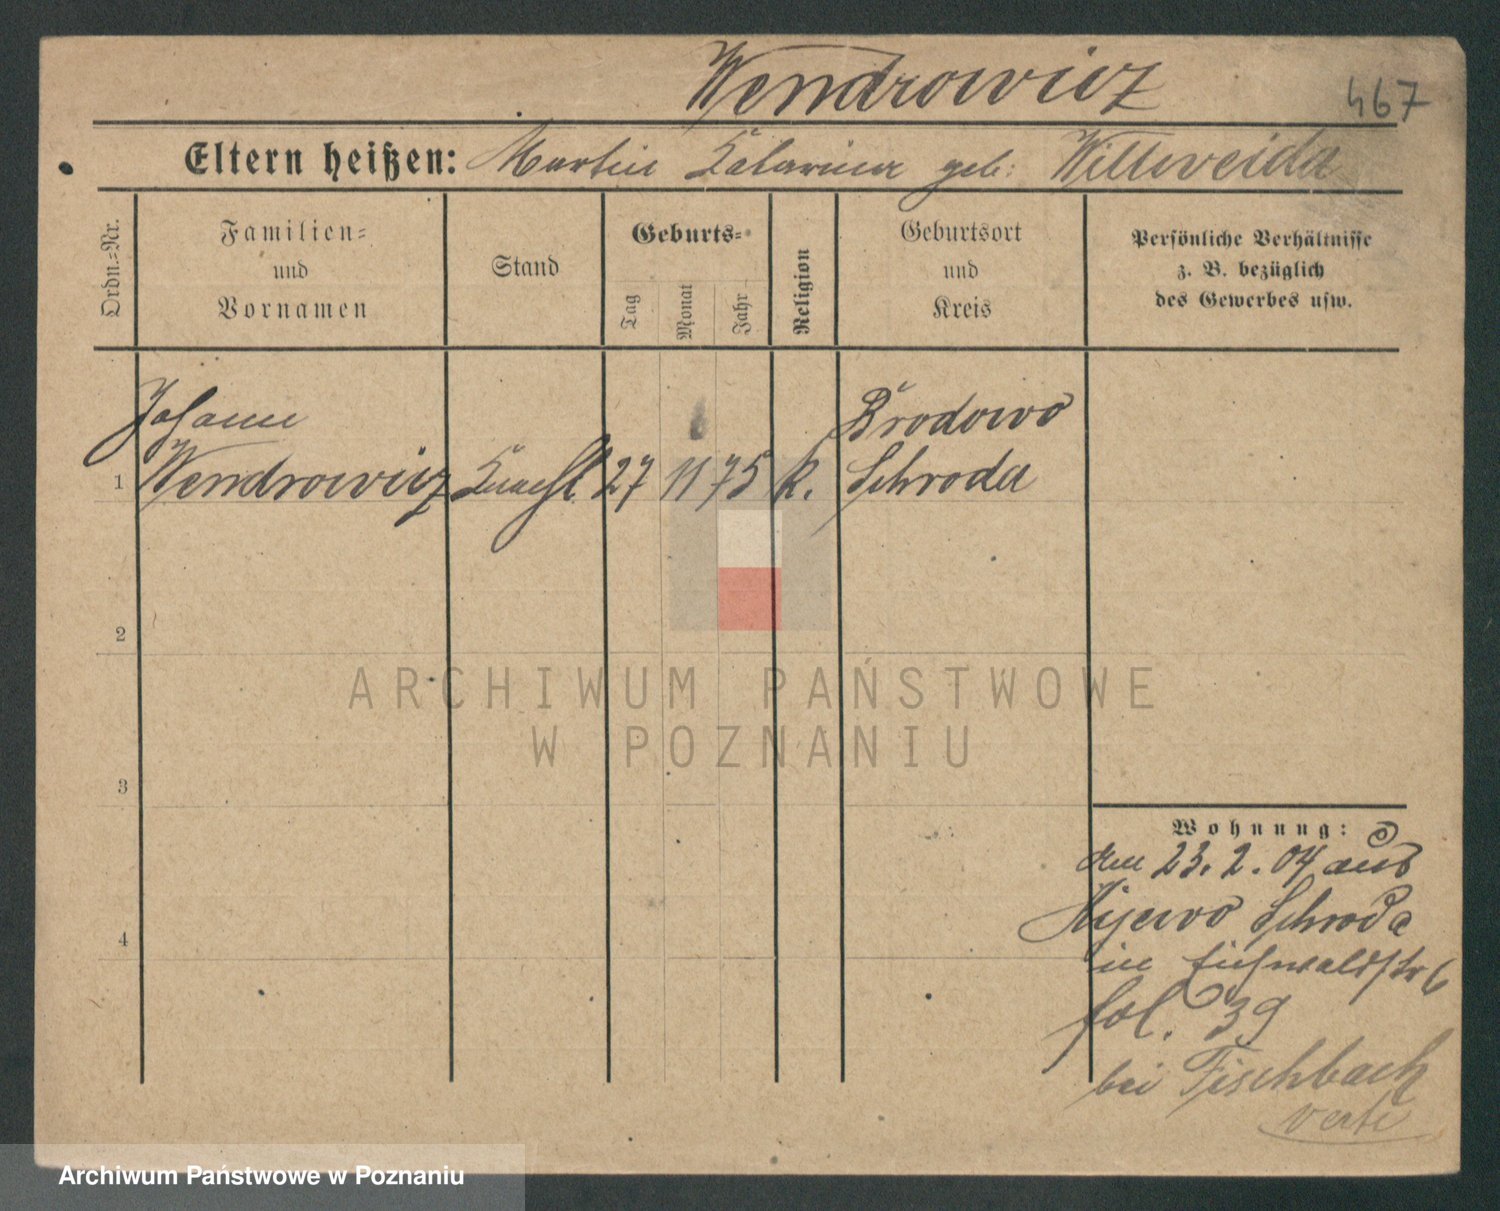 Wendrowicz
467
Eltern heißen: Martin Katarina geb: Wittweida
Ordn.=Nr.
Familien=
und
Vornamen
Stand
Geburts=
Tag
Monat
Jahr
Religion
Geburtsort
und
Kreis
Persönliche Verhältnisse
z. B. bezüglich
des Gewerbes usw.
Johann
Brodowo
1 Wendrowicz Knecht 27 11 75 k. Schroda
2
ARCHIWUM PAŃSTWOWE
W POZNANIU
3
Wohnung:
den 23. 2. 04 aus
Kijewo Schroda
in Eichwaldstr 6
fol. 39
bei Fischbach
verte
4
Archiwum Państwowe w Poznaniu